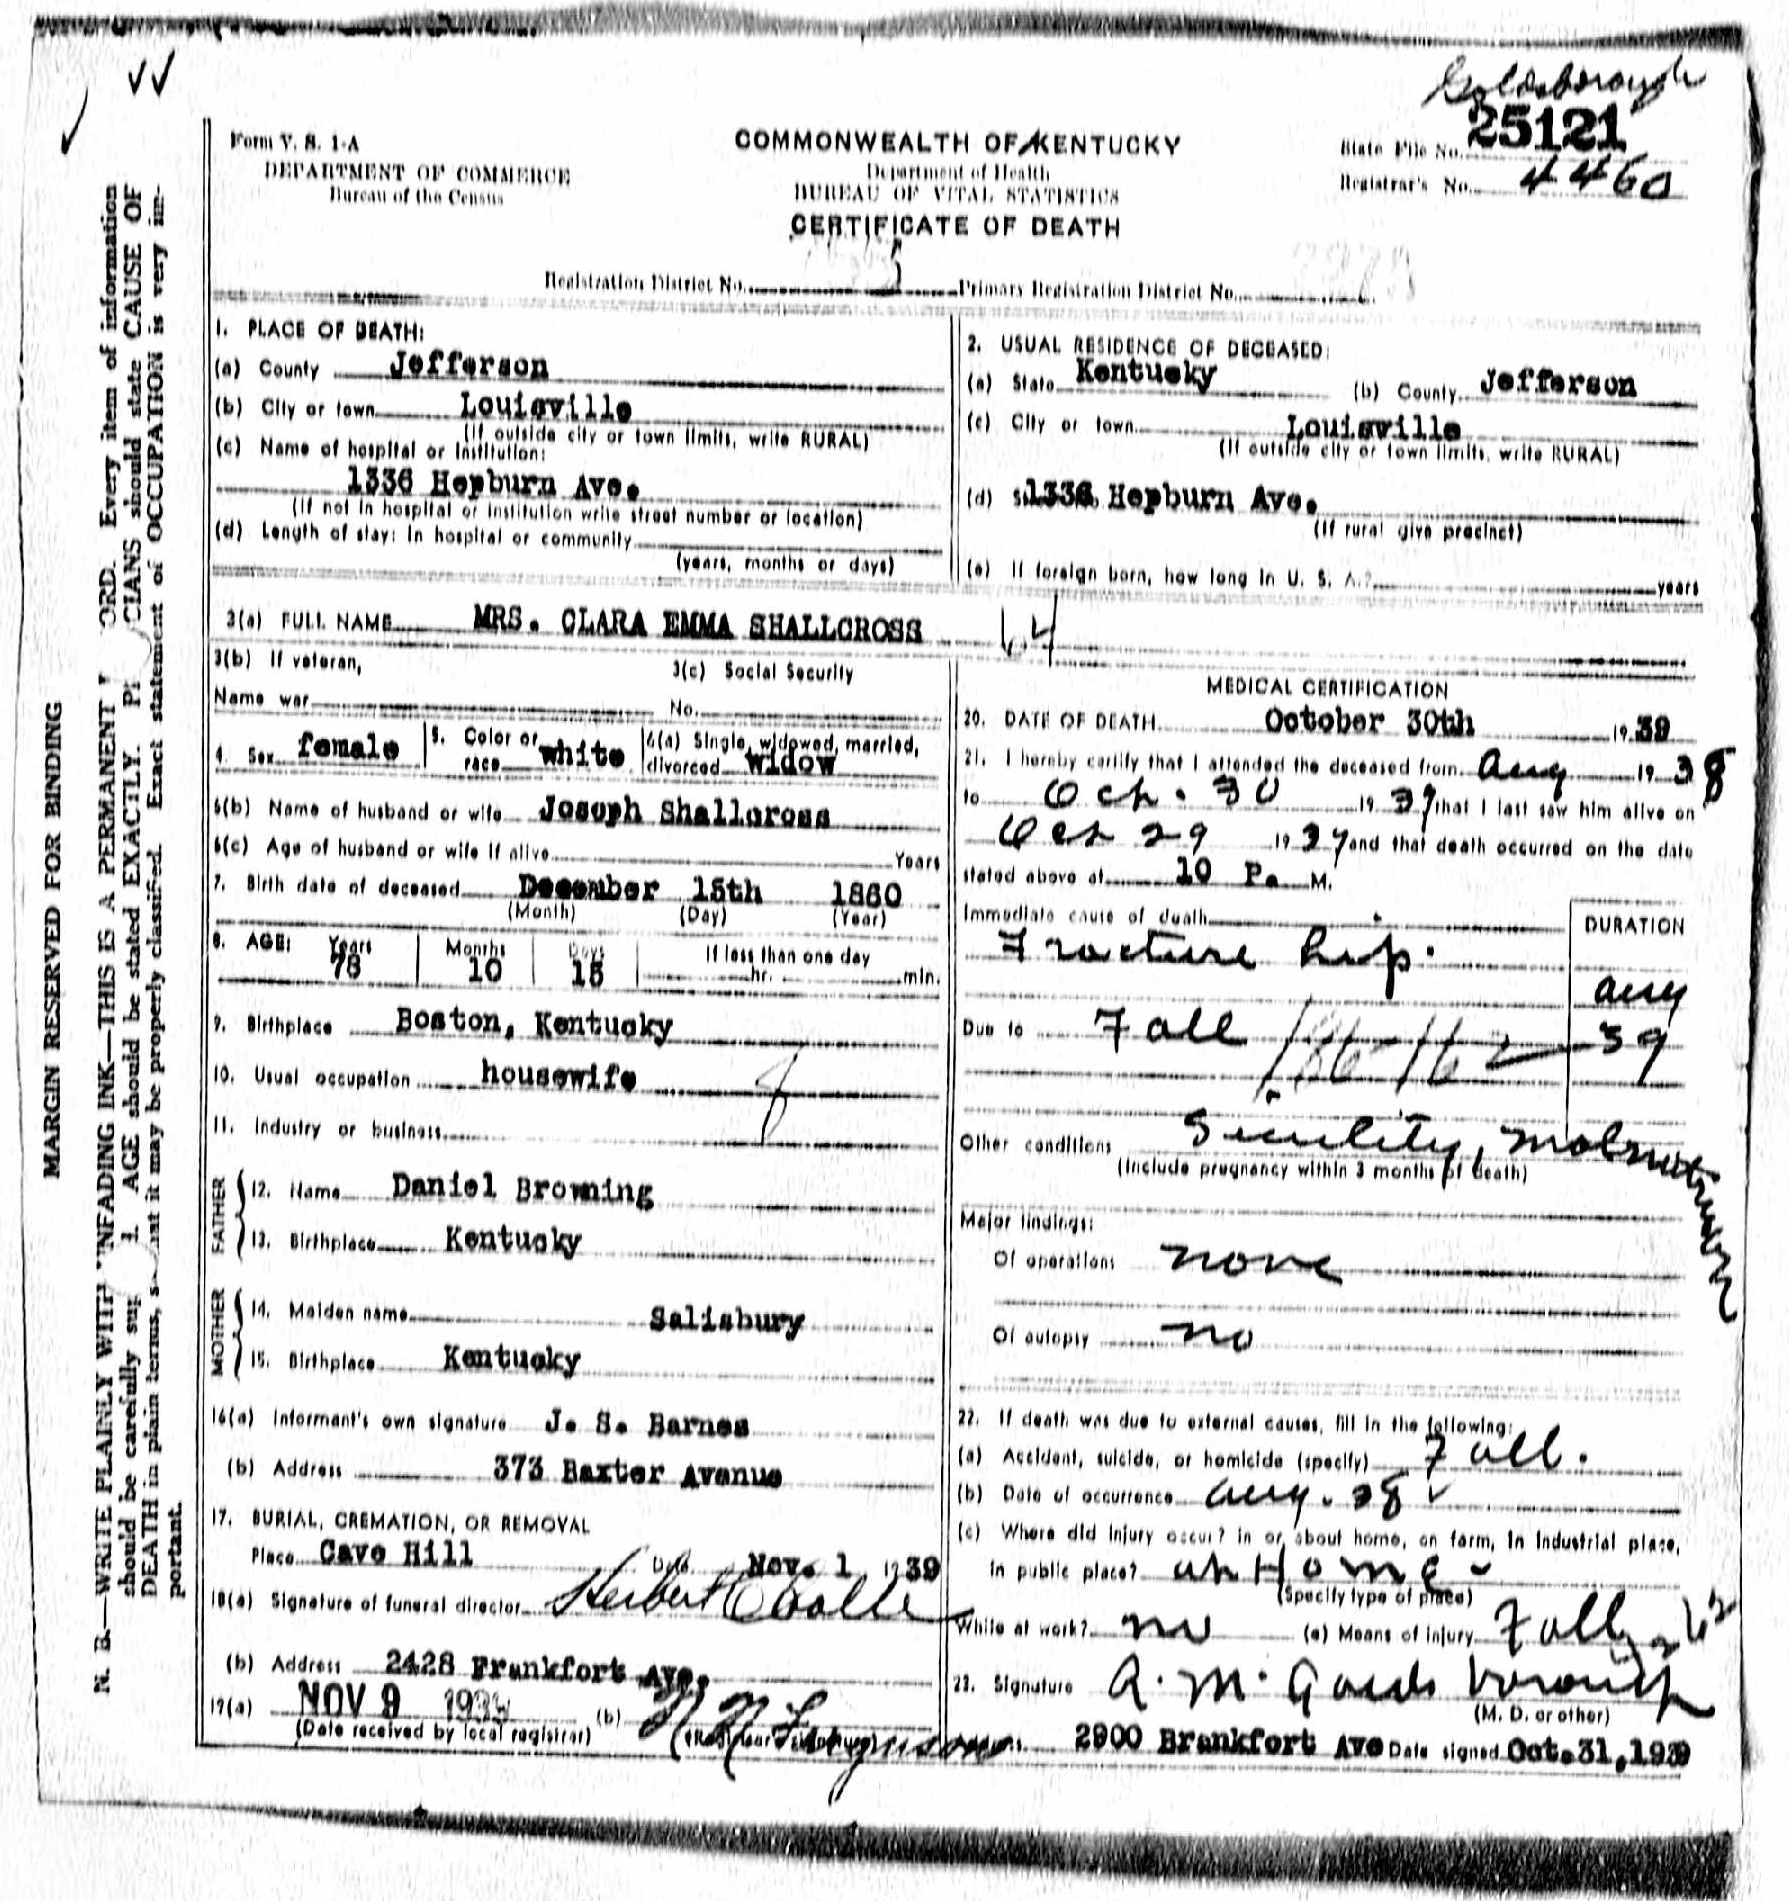 Goldsborough
Form V. S. 1-A
DEPARTMENT OF COMMERCE
Bureau of the Census
COMMONWEALTH OF KENTUCKY
Department of Health
BUREAU OF VITAL STATISTICS
CERTIFICATE OF DEATH
State File No. 25121
Registrar's No. 4460
Registration District No. Primary Registration District No.
1. PLACE OF DEATH:
(a) County Jefferson
(b) City or town Louisville
(If outside city or town limits, write RURAL)
(c) Name of hospital or institution:
1336 Hepburn Ave.
(If not in hospital or institution write street number or location)
(d) Length of stay: In hospital or community
(years, months or days)
2. USUAL RESIDENCE OF DECEASED:
(a) State Kentucky (b) County Jefferson
(c) City or town Louisville
(If outside city or town limits, write RURAL)
(d) 1336 Hepburn Ave.
(If rural give precinct)
(e) If foreign born, how long in U. S. A.? years
3(a) FULL NAME MRS. CLARA EMMA SHALLCROSS
3(b) If veteran, 3(c) Social Security
Name war No.
4. Sex female 5. Color or race white 6(a) Single, widowed, married, divorced widow
6(b) Name of husband or wife Joseph Shallcross
6(c) Age of husband or wife if alive Years
7. Birth date of deceased December 15th 1860
(Month) (Day) (Year)
8. AGE: Years Months Days If less than one day
78 10 15 hr. min.
9. Birthplace Boston, Kentucky
10. Usual occupation housewife
11. Industry or business
FATHER
12. Name Daniel Browning
13. Birthplace Kentucky
MOTHER
14. Maiden name Salisbury
15. Birthplace Kentucky
16(a) Informant's own signature J. S. Barnes
(b) Address 373 Baxter Avenue
17. BURIAL, CREMATION, OR REMOVAL
Place Cave Hill Date Nov. 1 1939
18(a) Signature of funeral director Herbert C
(b) Address 2428 Frankfort Ave.
19(a) NOV 9 1939 (b) Ferguson
(Date received by local registrar) (Registrar's signature)
64
MEDICAL CERTIFICATION
20. DATE OF DEATH October 30th 19 39
21. I hereby certify that I attended the deceased from Aug 19 38
to Oct. 30 19 39 that I last saw him alive on
Oct 29 19 39 and that death occurred on the date
stated above at 10 P. M.
Immediate cause of death DURATION
Fracture hip.
Aug
Due to Fall 39
Other conditions Senility, Malnutrition
(Include pregnancy within 3 months of death)
Major findings:
Of operations none
Of autopsy no
22. If death was due to external causes, fill in the following:
(a) Accident, suicide, or homicide (specify) Fall.
(b) Date of occurrence Aug. 38
(c) Where did injury occur? in or about home, on farm, in industrial place,
in public place? at Home
(Specify type of place)
While at work? no (e) Means of injury Fall
23. Signature A. M. Goldsborough
(M. D. or other)
2900 Brankfort Ave Date signed Oct. 31, 1939
MARGIN RESERVED FOR BINDING
N. B.—WRITE PLAINLY WITH UNFADING INK—THIS IS A PERMANENT ORD. Every item of information
should be carefully AGE should be stated EXACTLY. CIANS should state CAUSE OF
DEATH in plain terms, it may be properly classified. Exact statement of OCCUPATION is very im-
portant.